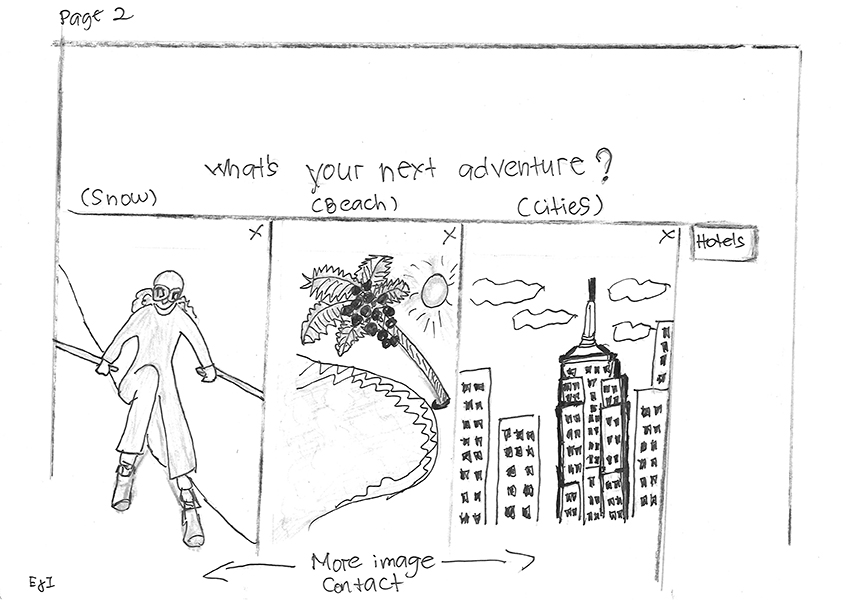 Page 2
What's your next adventure?
(Snow)
(Beach)
(Cities)
X
X
X
Hotels
More image
Contact